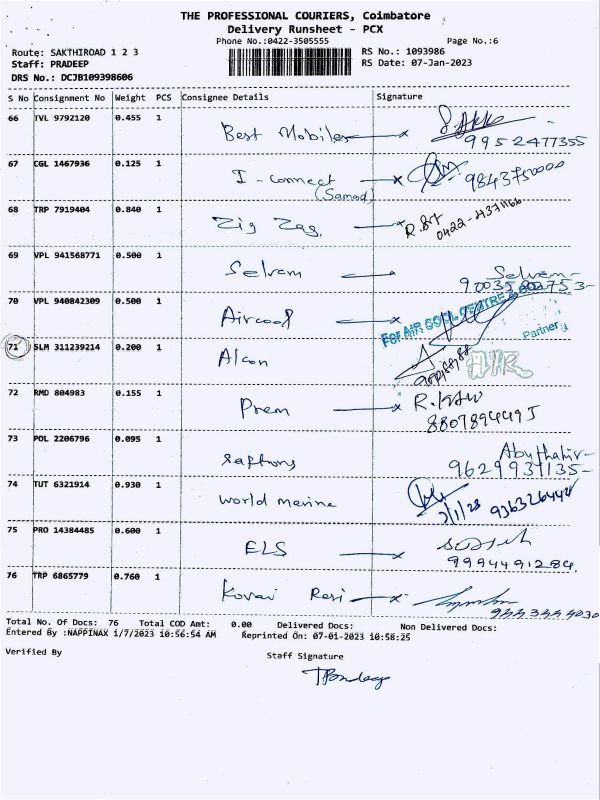 THE PROFESSIONAL COURIERS, Coimbatore
Delivery Runsheet - PCX
Phone No.:0422-3505555
Page No.:6
Route: SAKTHIROAD 1 2 3
RS No.: 1093986
Staff: PRADEEP
RS Date: 07-Jan-2023
DRS No.: DCJB109398606
S No Consignment No Weight PCS Consignee Details Signature
66 TVL 9792120 0.455 1 Best Mobiles 9952477355
67 CGL 1467936 0.125 1 I-connect 9843750000
(Samad)
68 TRP 7919404 0.840 1 Zig Zag
69 VPL 941568771 0.500 1 Selvam Selvam
70 VPL 940842309 0.500 1 Aircool
For AIR COOL CENTRE
Partner
71 SLM 311239214 0.200 1 Alcon
72 RMD 804983 0.155 1 Prem
8807894495
73 POL 2206796 0.095 1
9629937135
74 TUT 6321914 0.930 1 World marine
75 PRO 14384485 0.600 1 ELS
9994491284
76 TRP 6865779 0.760 1 Kovai
Total No. Of Docs: 76 Total COD Amt: 0.00 Delivered Docs: Non Delivered Docs:
Entered By :NAPPINAX 1/7/2023 10:56:54 AM Reprinted On: 07-01-2023 10:58:25
Verified By
Staff Signature